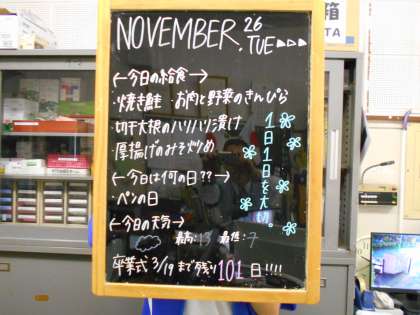 NOVEMBER. 26
TUE
←今日の給食→
・焼き鮭 ・お肉と野菜のきんぴら
・切干大根のハリハリ漬け
・厚揚げのみそ炒め
←今日は何の日??→
・ペンの日
←今日の天気→
最高:13 最低:7
卒業式 3/19 まで残り 101日!!!!
1日1日を大切に。
箱
TA